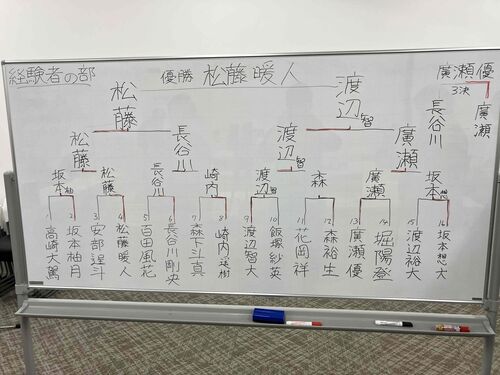 経験者の部
優勝 松藤暖人
廣瀬優
3決
廣瀬
長谷川
松藤
渡辺智
松藤
長谷川
渡辺智
廣瀬
坂本柚
松藤
長谷川
崎内
渡辺智
森
廣瀬
坂本想
1 高崎大篤
2 坂本柚月
3 安部遥斗
4 松藤暖人
5 百田風花
6 長谷川剛央
7 森下斗真
8 崎内遥樹
9 渡辺智大
10 飯塚紗英
11 花岡祥
12 森裕生
13 廣瀬優
14 堀陽登
15 渡辺裕大
16 坂本想太